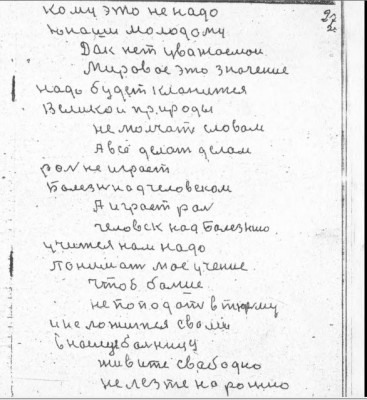 кому это не надо
юнаши молодому
Дак нет уважаемои
Мировое это значение
надо будет кланится
Великои природы
не молчат словам
А всё делат делам
рол не играет
Болезн над человеком
А играет рол
человек над Болезнию
учится нам надо
понимат мое учение
Чтоб болше
не пополодат в тюрму
и не ложится своми
в нашу болницу
живите свабодно
не лезте на рожно